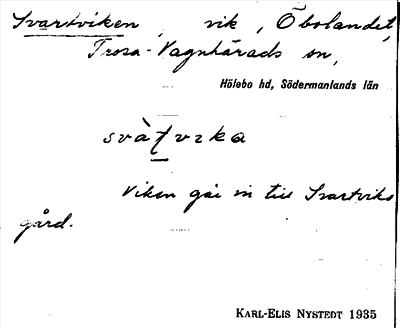 Svartviken, vik, Öbolandet,
Trosa-Vagnhärads sn,
Hölebo hd, Södermanlands län
Viken går in till Svartviks
gård.
KARL-ELIS NYSTEDT 1935